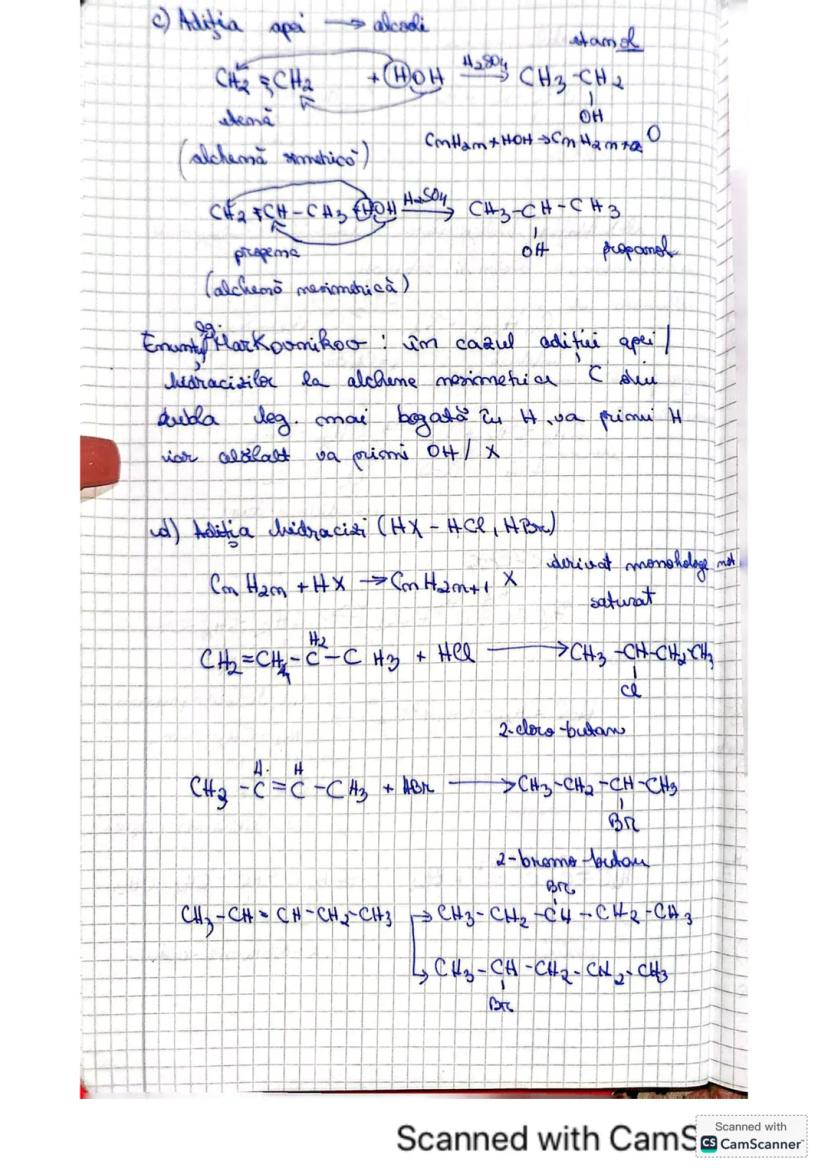 c) Adiția apei → alcooli
etanol
CH2 = CH2 + HOH H2SO4 → CH3 - CH2
etenă OH
(alchenă simetrică) CnH2n + HOH → CnH2n+2 O
CH2 = CH - CH3 + HOH H2SO4 → CH3 - CH - CH3
propena OH propanol
(alchenă nesimetrică)
Enunț Markovnikov : în cazul adiției apei /
hidracizilor la alchene nesimetrice C din
dubla leg. mai bogată în H, va primi H
iar celălalt va primi OH / X
d) Adiția hidracizi (HX - HCl, HBr)
CnH2n + HX → CnH2n+1 X derivat monohalogenat
saturat
H2
CH2 = CH - C - CH3 + HCl → CH3 - CH - CH2 - CH3
Cl
2-cloro-butan
H H
CH3 - C = C - CH3 + HBr → CH3 - CH2 - CH - CH3
Br
2-bromo-butan
Br
CH3 - CH = CH - CH2 - CH3 → CH3 - CH2 - CH - CH2 - CH3
→ CH3 - CH - CH2 - CH2 - CH3
Br
Scanned with CamS
Scanned with
CS CamScanner